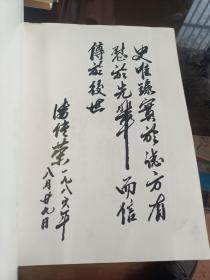 史唯臻實於誌方有
慰於先輩而信
傳於後世
一九八六年
八月廿九日